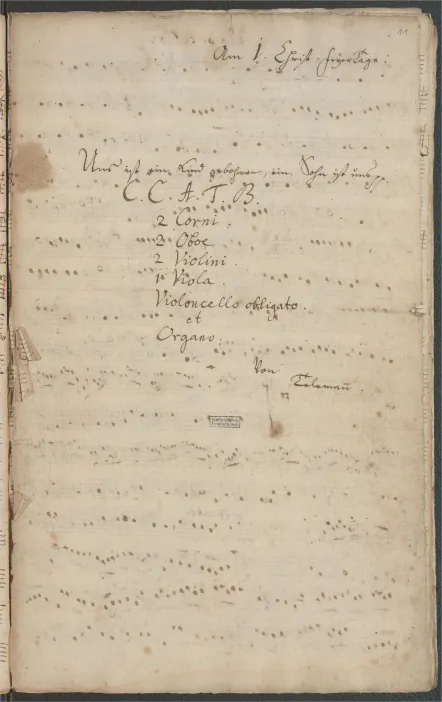 11
Am 1. Christ-Feyertage.
Uns ist ein Kind gebohren, ein Sohn ist uns pp.
C. C. A. T. B.
2 Corni.
2 Oboe
2 Violini.
1 Viola.
Violoncello obligato.
et
Organo.
Von
Telemañ.